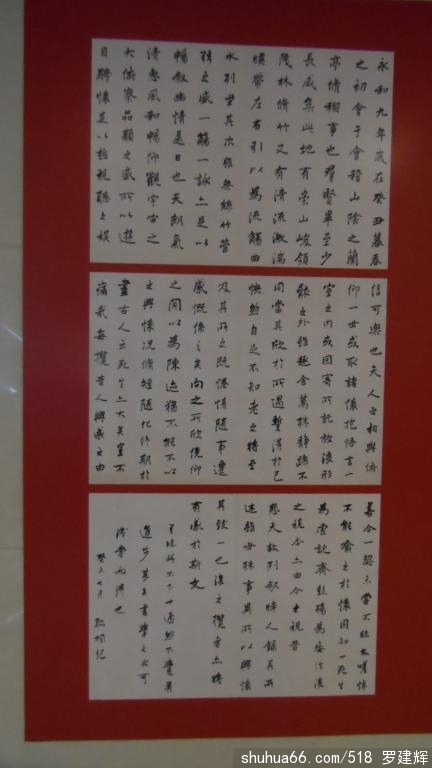 永和九年歲在癸丑暮春
之初會于會稽山陰之蘭
亭脩禊事也羣賢畢至少
長咸集此地有崇山峻領
茂林脩竹又有清流激湍
暎帶左右引以為流觴曲
水列坐其次雖無絲竹管
弦之盛一觴一詠亦足以
暢敘幽情是日也天朗氣
清惠風和暢仰觀宇宙之
大俯察品類之盛所以遊
目騁懷足以極視聽之娛
信可樂也夫人之相與俯
仰一世或取諸懷抱悟言一
室之內或因寄所託放浪形
骸之外雖趣舍萬殊靜躁不
同當其欣於所遇蹔得於己
怏然自足不知老之將至
及其所之既惓情隨事遷
感慨係之矣向之所欣俛仰
之間以為陳迹猶不能不以
之興懷況脩短隨化終期於
盡古人云死生亦大矣豈不
痛哉每攬昔人興感之由
若合一契未嘗不臨文嗟悼
不能喻之於懷固知一死生
為虛誕齊彭殤為妄作後
之視今亦由今之視昔
悲夫故列敘時人錄其所
述雖世殊事異所以興懷
其致一也後之攬者亦將
有感於斯文
進步甚矣書學之不可
淺嘗而得也
七月
shuhua66.com/518 罗建辉